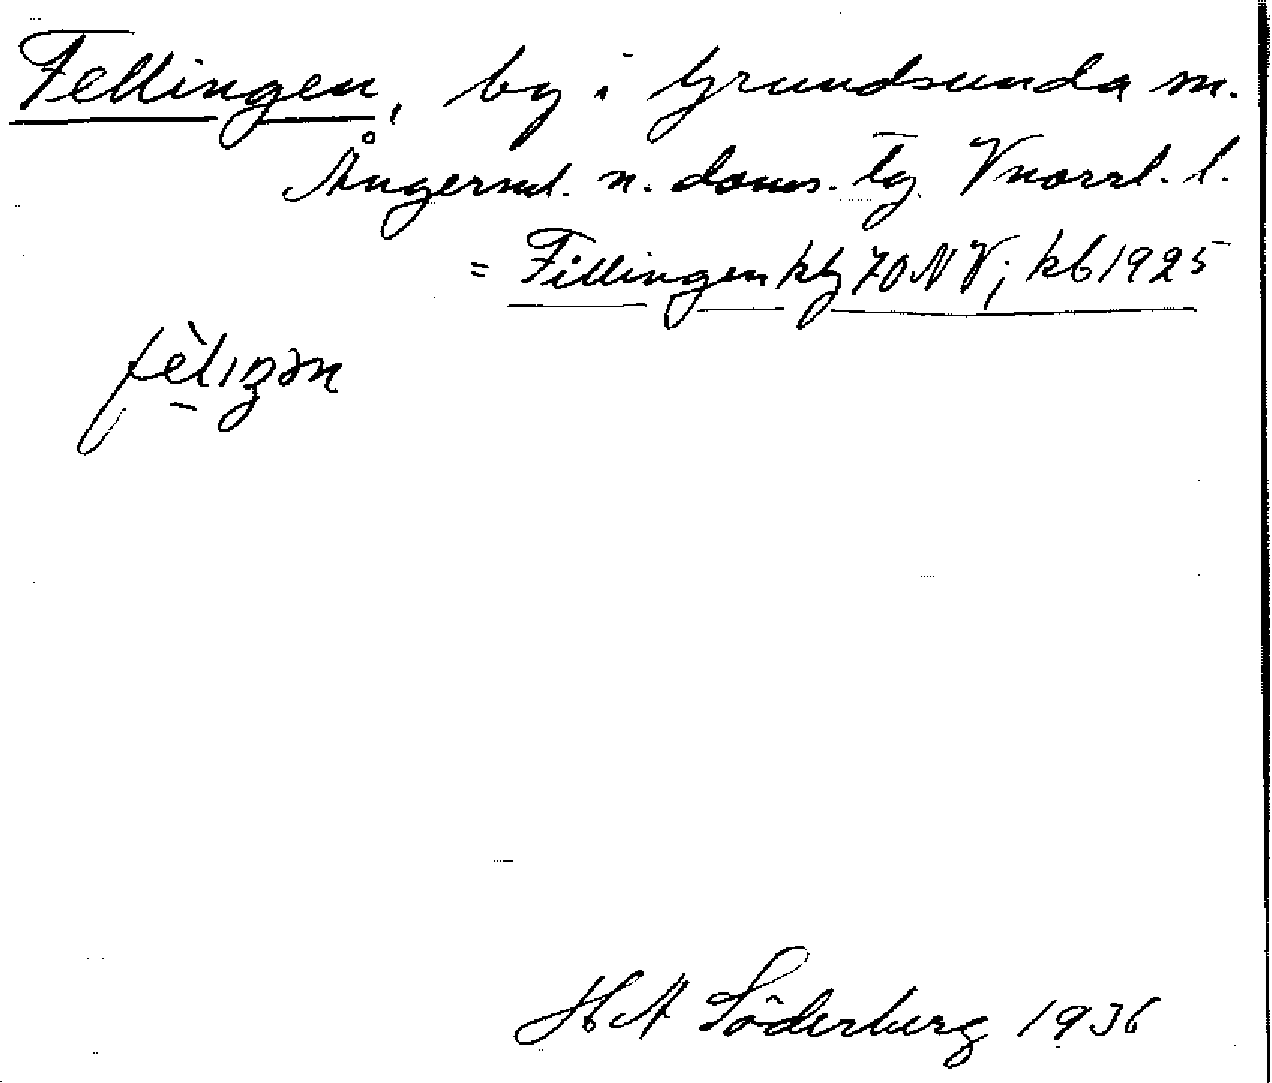 Fellingen, by i Grundsunda sn.
Ångerml. n. doms. tg. Vnorrl. l.
= Fillingen kbg 70 NV; kb 1925
fèlıŋən
H A Söderberg 1936